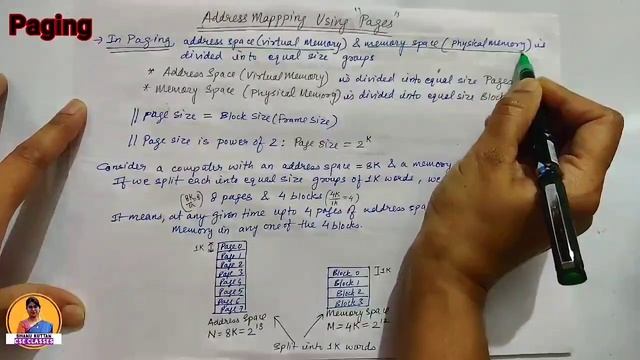 Paging
Address Mappping Using "Pages"
→ In Paging, address space (virtual memory) & memory space (physical memory) is
divided into equal size groups
* Address Space (Virtual Memory) is divided into equal size Pages
* Memory Space (Physical Memory) is divided into equal size Block
// page size = Block size (frame size)
// Page size is power of 2 : Page size = 2^K
Consider a computer with an address space = 8K & a memory
If we split each into equal size groups of 1K words, we
(8K/1K = 8) 8 pages & 4 blocks (4K/1K = 4)
It means, at any given time upto 4 pages of address spa
Memory in any one of the 4 blocks.
1K
Page 0
Page 1
Page 2
Page 3
Page 4
Page 5
Page 6
Page 7
Address Space
N = 8K = 2^13
Block 0
Block 1
Block 2
Block 3
1K
Memory Space
M = 4K = 2^12
Split into 1K words
CSE CLASSES